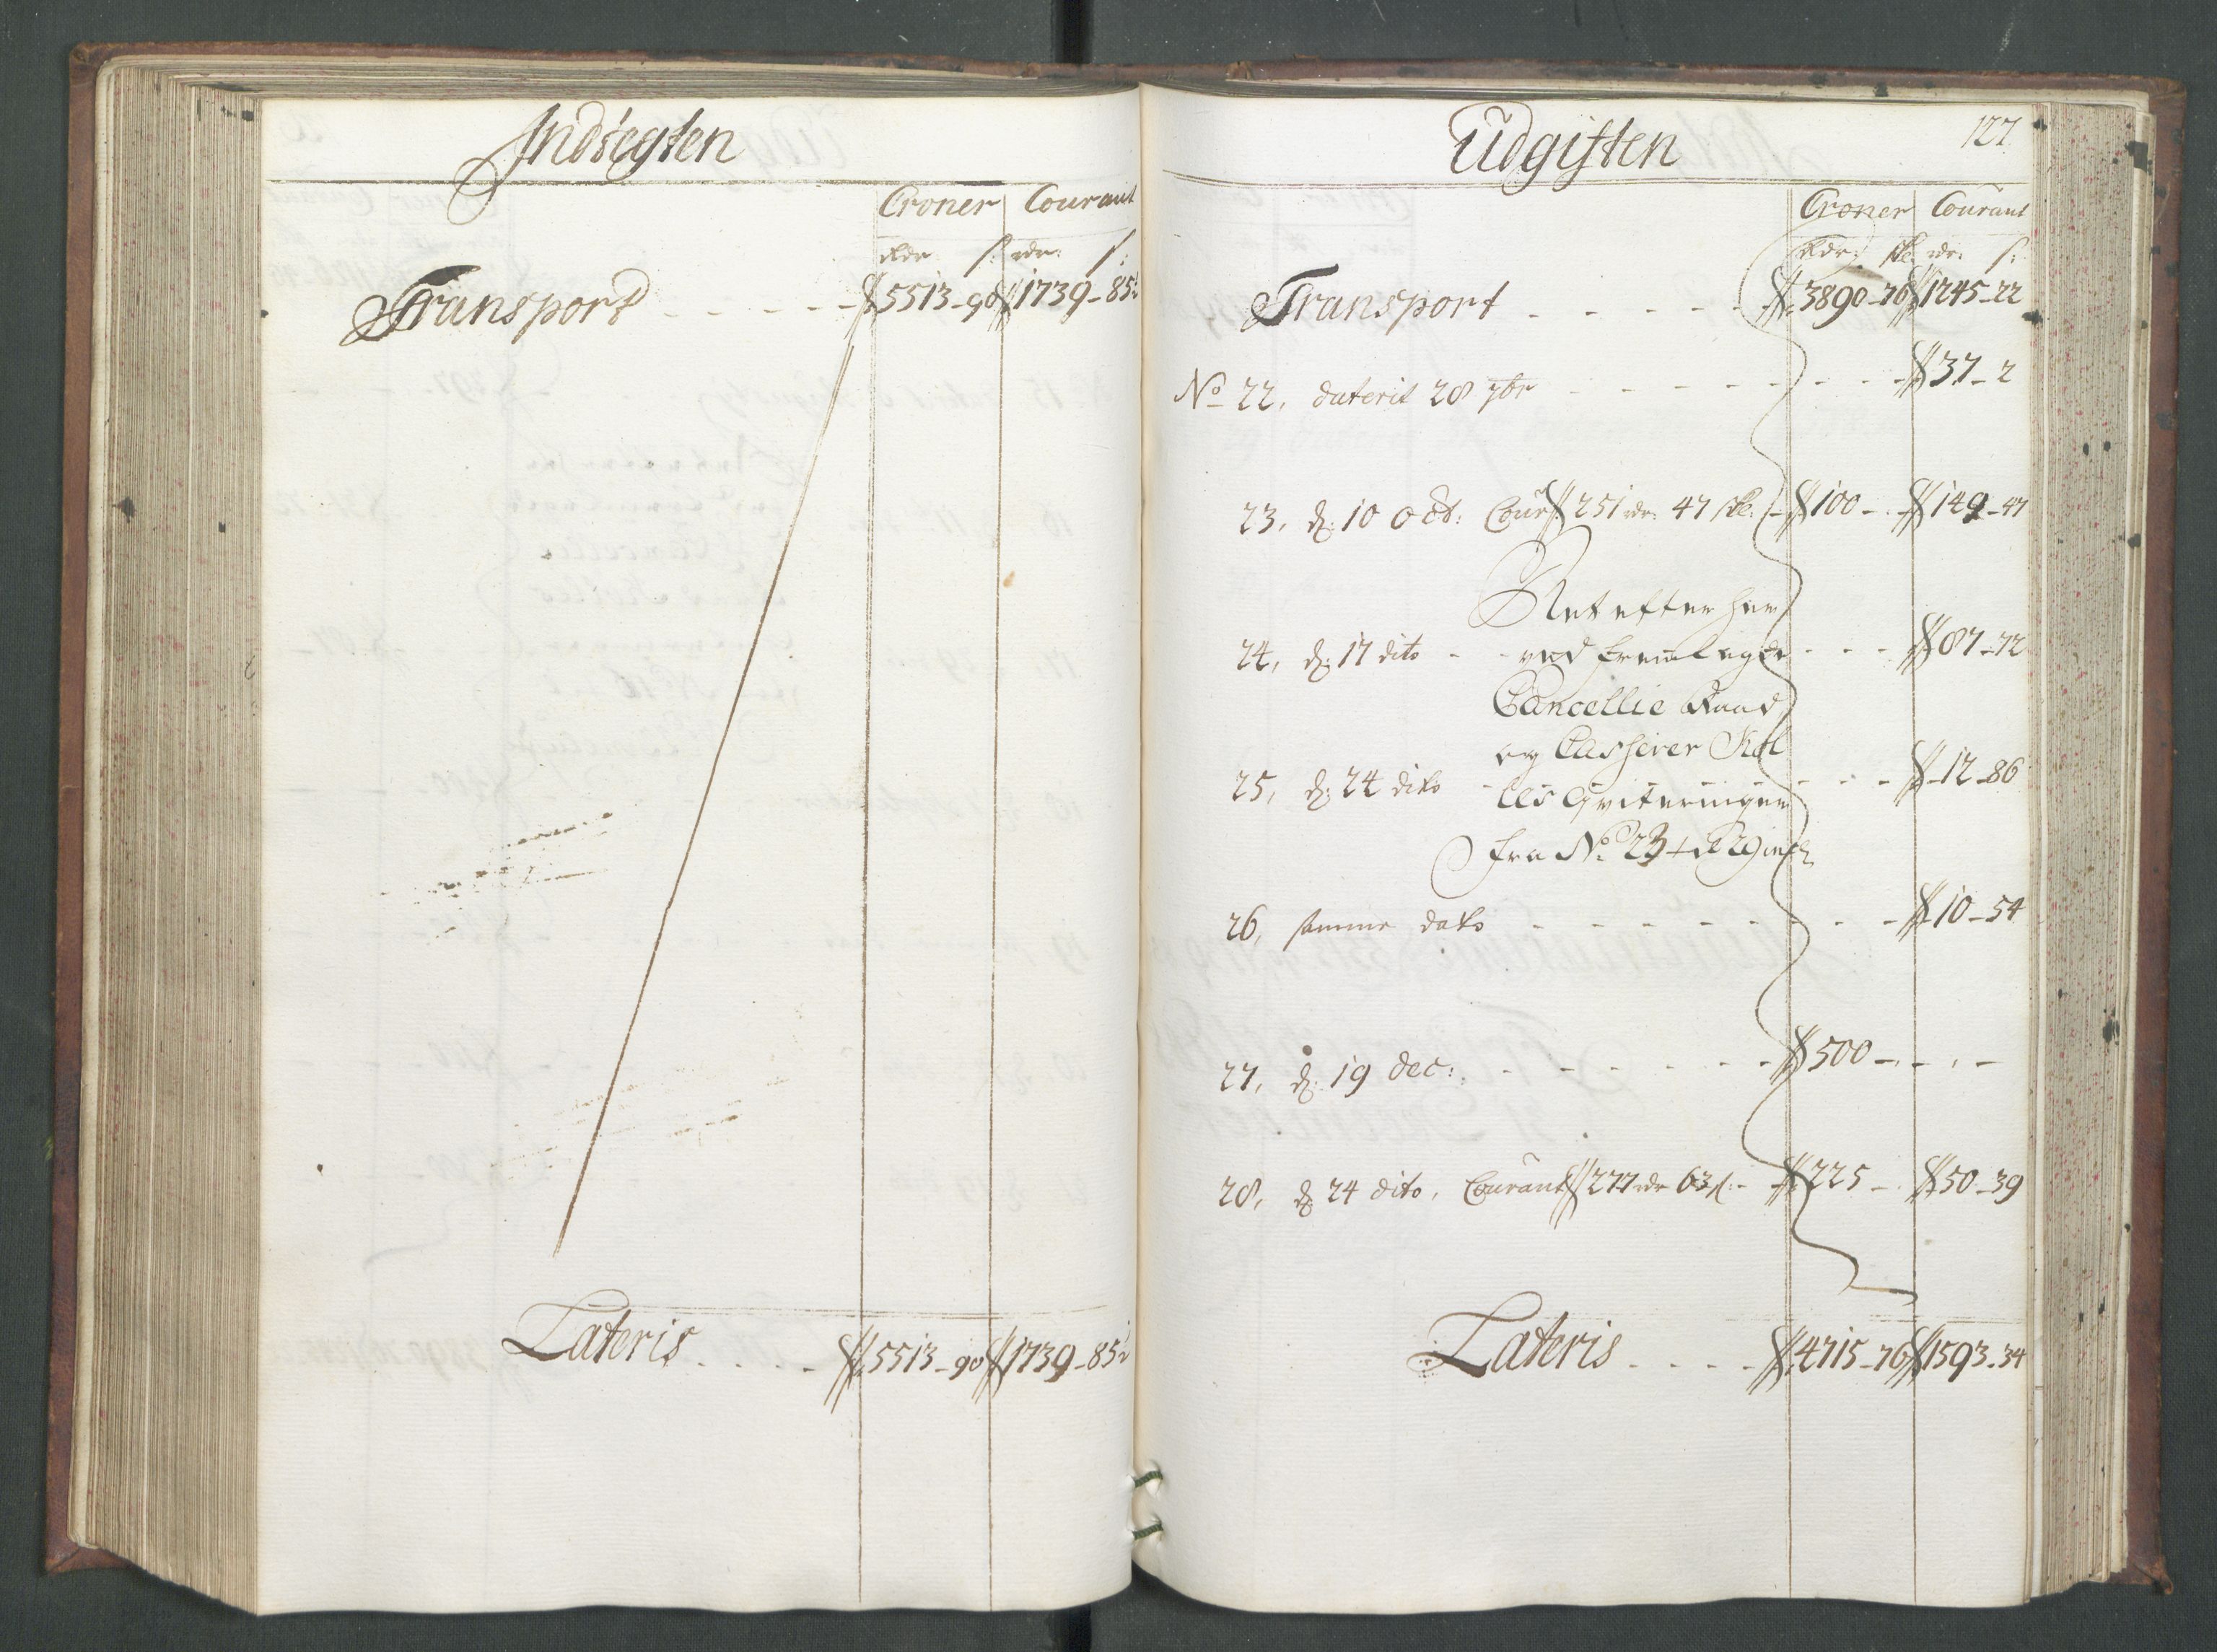 Indtegten
Croner Courant
Rdr ß rdr: ß:
Transport - - - - - 5513-90 1739-85½
Lateris - - - - 5513-90 1739-85½
Udgiften
127
Croner Courant
Rdr: ske rdr: ß:
Transport - - - - - 3890-76 1245-22
No 22, daterit 28 7br - - - - - - - 37-2
23, d: 10 Oct: Cour 251 rdr 47 ske: - 100 - - 149-47
Ret efter her
24, d: 17 dito - - ved fremlagde - - - 87-72
Cancellie Raad
og Casserer Kol
25, d: 24 dito - les Qviteringer - - - 12-86
fra No 23 til 29 incl:
26, samme dato - - - - - - - 10-54
27, d: 19 dec: - - - - - - 500 - - - -
28, d: 24 dito, Courant 277 rdr 63 ß: - 225 - 50-39
Lateris - - - - 4715-76 1593-34